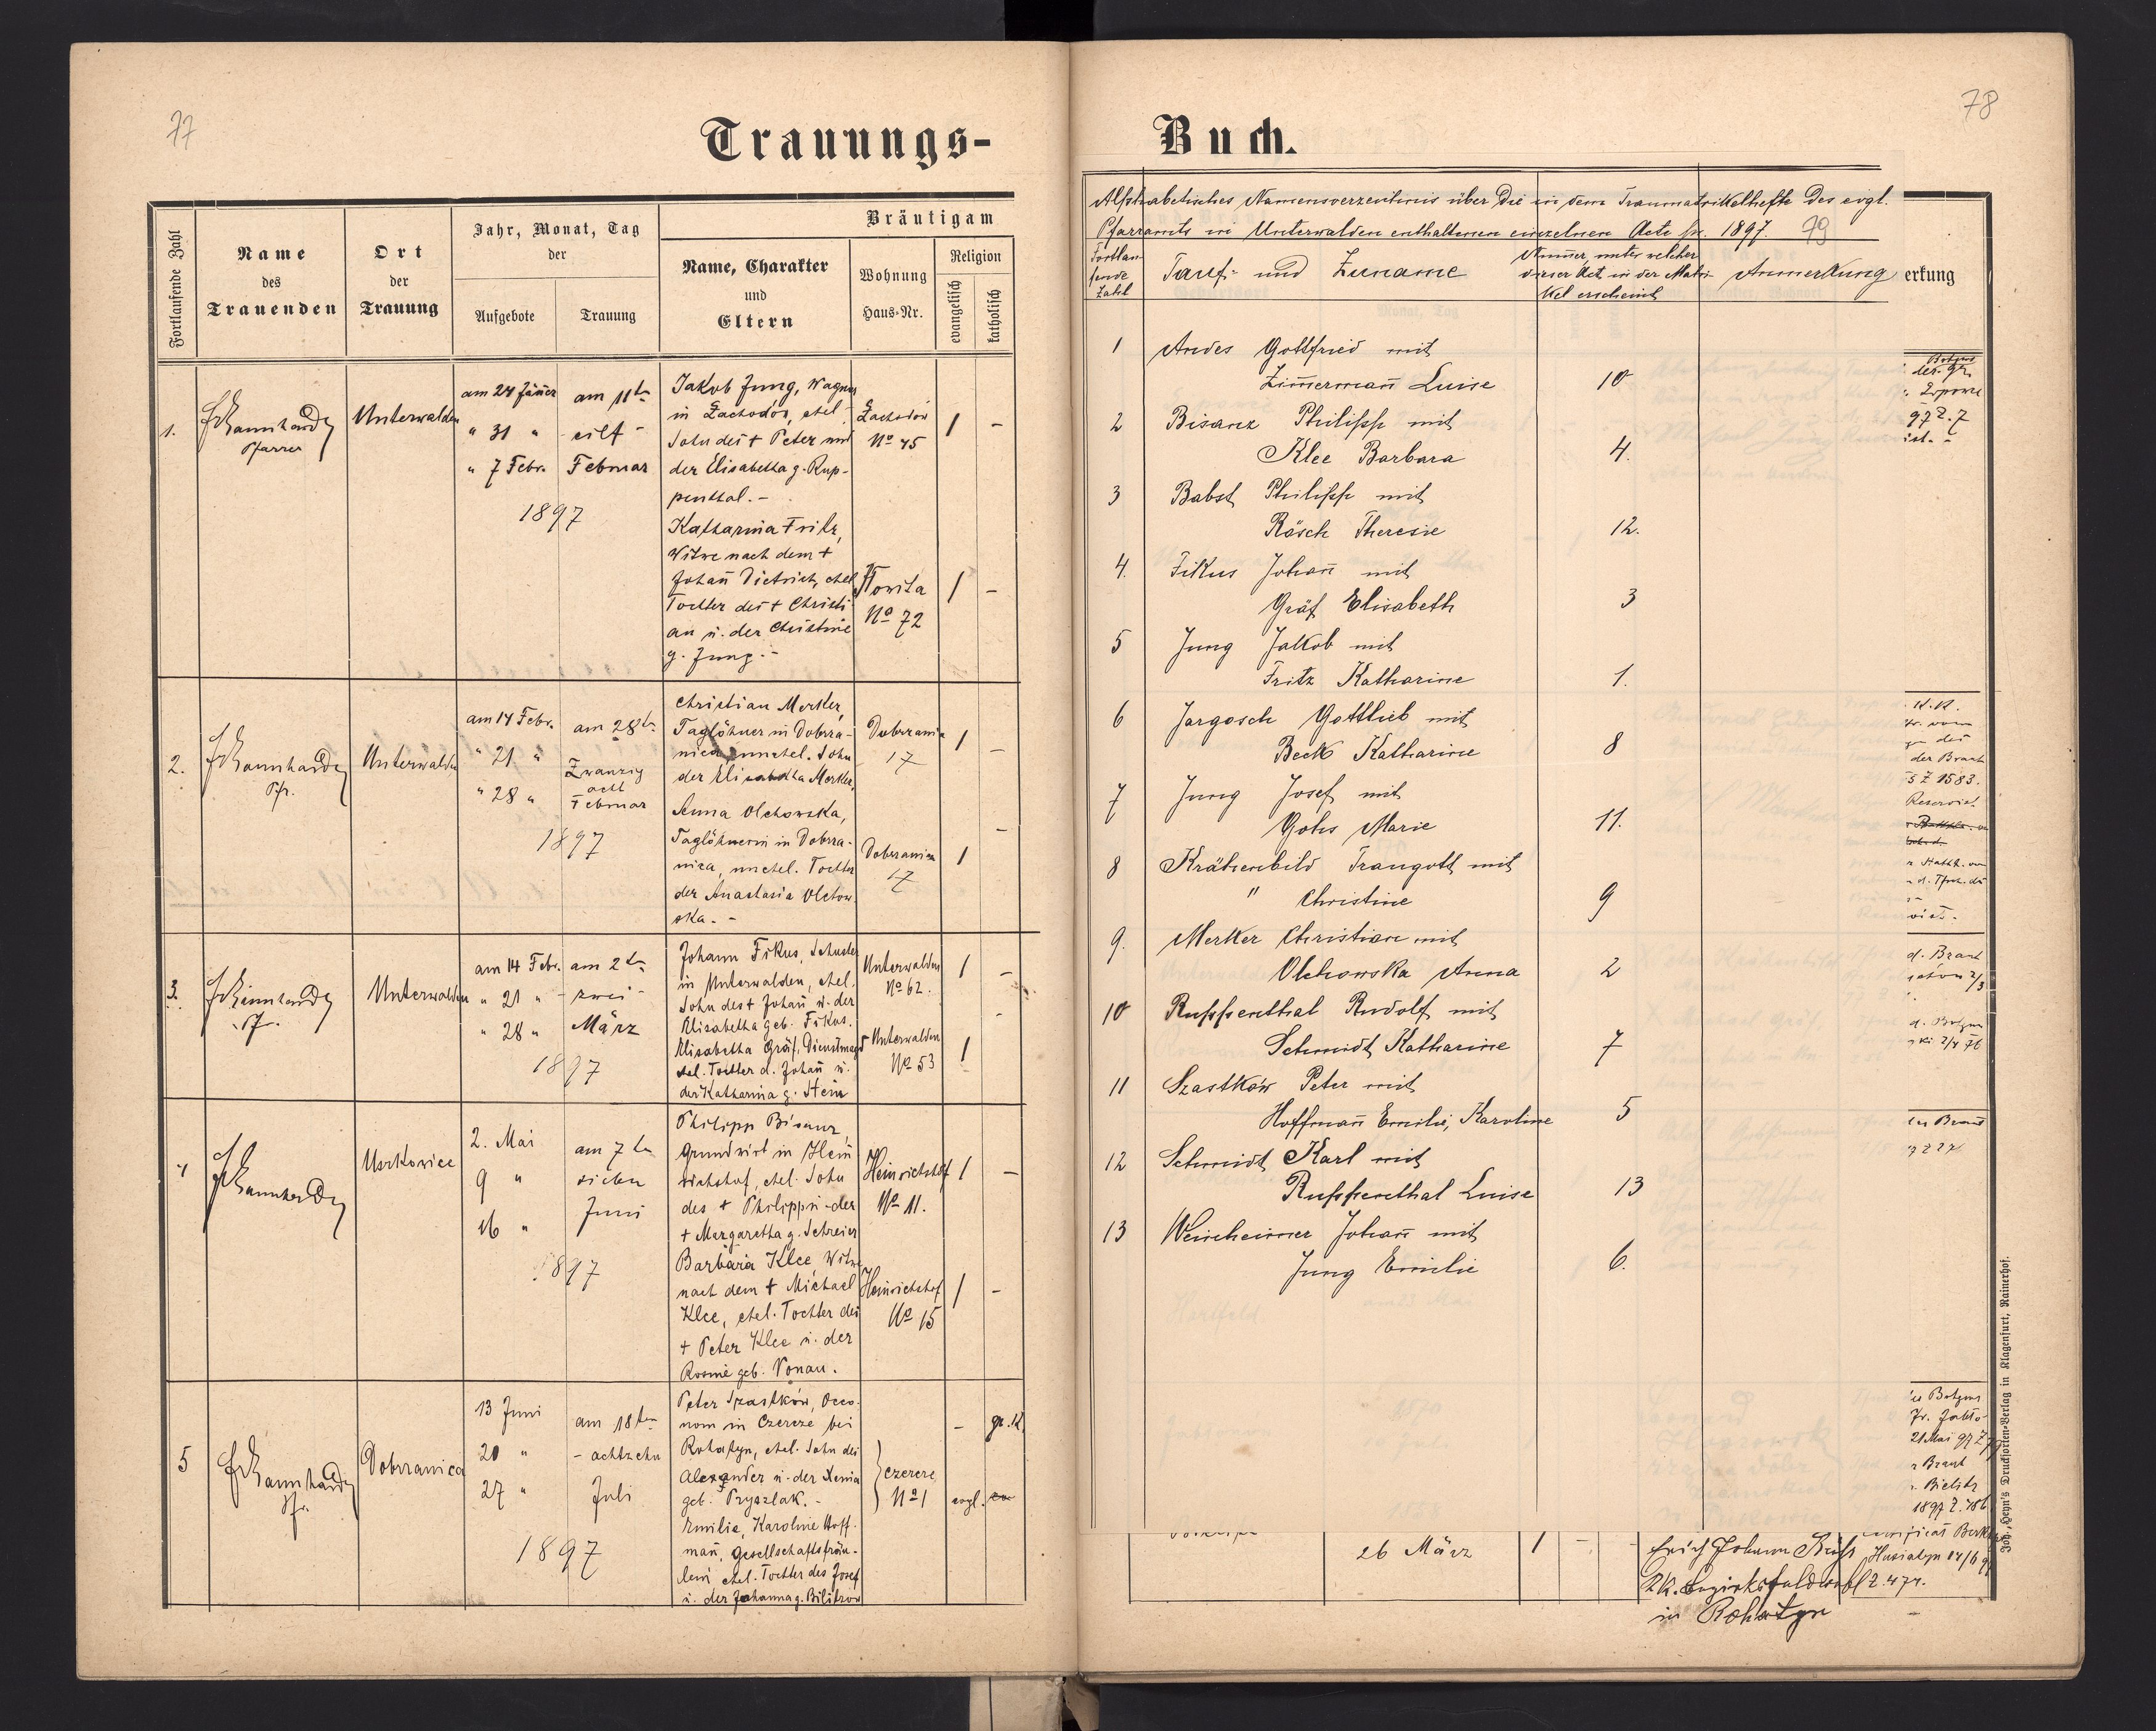 77
Trauungs-
Fortlaufende Zahl
Name
des
Trauenden
Ort
der
Trauung
Jahr, Monat, Tag
der
Aufgebote
Trauung
Bräutigam
Name, Charakter
und
Eltern
Wohnung
Haus-Nr.
Religion
evangelisch
katholisch
1.
Pfarrer
Unterwalden
am 24 Jäner
" 31 "
" 7 Febr.
am 11te
eilf -
Februar
1897
Jakob Jung, Wagner
in Zachodów, ehel.
Sohn des + Peter und
der Elisabetha g. Rup-
penthal. -
Zachodów
No 45
1 -
Katharina Fritz,
Witwe nach dem +
Johan̄ Dietrich, ehel.
Tochter des + Christi
an u. der Christine
g. Jung. -
No 72
1 -
2.
Pfr.
Unterwalden
am 14 Febr.
" 21 "
" 28 "
am 28te
Zwanzig
acht
Februar
1897
Christian Merker,
Taglöhner in Dobrza-
nica, unehel. Sohn
der Elisabetha Merker,
Dobrzanica
17
1 -
Anna Olchowska,
Taglöhnerin in Dobrza-
nica, unehel. Tochter
der Anastasia Olchow
ska. -
Dobrzanica
17
1 -
3.
Pf.
Unterwalden
am 14 Febr.
" 21 "
" 28 "
am 2te
- zwei -
März
1897
Johann Fikus, Schuster
in Unterwalden, ehel.
Sohn des + Johan̄ u. der
Elisabetha geb. Fikus.
Unterwalden
No 62.
1 -
Elisabetha Gräf, Dienstmagd
ehel. Tochter d. Johan̄ u.
der Katharina g. Stein
Unterwalden
No 53
1 -
4
Uszkowice
2. Mai
9 "
16 "
am 7te
sieben
Juni
1897
Philipp Bisanz,
Grundwirt in Hein
richshof, ehel. Sohn
des + Philipp u. der
+ Margaretha g. Schreier
Heinrichshof
No 11.
1 -
Barbara Klee, Witwe
nach dem + Michael
Klee, ehel. Tochter des
+ Peter Klee u. der
Rosine geb. Vonau.
Heinrichshof
No 15
1 -
5
Pfr.
Dobrzanica
13 Juni
20 "
27 "
am 18ten
- achtzehn
Juli
1897
Peter Szastków, Oeco-
nom in Czercze bei
Rohatyn, ehel. Sohn des
Alexander u. der Xenia
geb. Pryszlak. -
Czercze
No 1
- gr. k.
Emilie, Karoline Hoff-
man̄, Gesellschaftsfräu-
lein, ehel. Tochter des Josef
u. der Johanna g. Bilitzow
evgl.
78
Buch.
Alphabetisches Namensverzeichnis über die in dem Traumatrikelhefte des evgl.
Pfarramts in Unterwalden enthaltenen einzelnen Acte pr. 1897. 79
Fortlau-
fende
Zahl
Tauf- und Zuname
Num̄er, unter welcher
dieser Act in der Matri-
kel erscheint
Anmerkung
erkung
1 Andes Gottfried mit
Zim̄erman̄ Luise 10
2 Bisanz Philipp mit
Klee Barbara 4.
3 Babst Philipp mit
Rösch Theresie 12.
4. Fikus Johan̄ mit
Gräf Elisabeth 3
5 Jung Jakob mit
Fritz Katharine 1.
6 Jargosch Gottlieb mit
Beck Katharine 8
7 Jung Josef mit
Gohs Marie 11.
8 Krähenbild Traugott mit
" Christine 9
9. Merker Christian mit
Olchowska Anna 2
10 Ruppenthal Rudolf mit
Schmidt Katharine 7
11 Szastków Peter mit
Hoffman̄ Emilie, Karoline 5
12 Schmidt Karl mit
Ruppenthal Luise 13
13 Weinheimer Johan̄ mit
Jung Emilie 6.
97 Z. 7
ist. -
K.K.
der Braut
5 Z 1583.
Reservist
d. Braut
2/3
2/4 76
21 Mai 97 Z
Braut
Bielitz
1897 Z.
26 März 1 - -
Erich Johann
k.k. Bezirksfeldwebel
in Rohatyn
Husiatyn 14/6 97
Z. 474.
Joh. Heyn's Drucksorten-Verlag in Klagenfurt, Rainerhof.